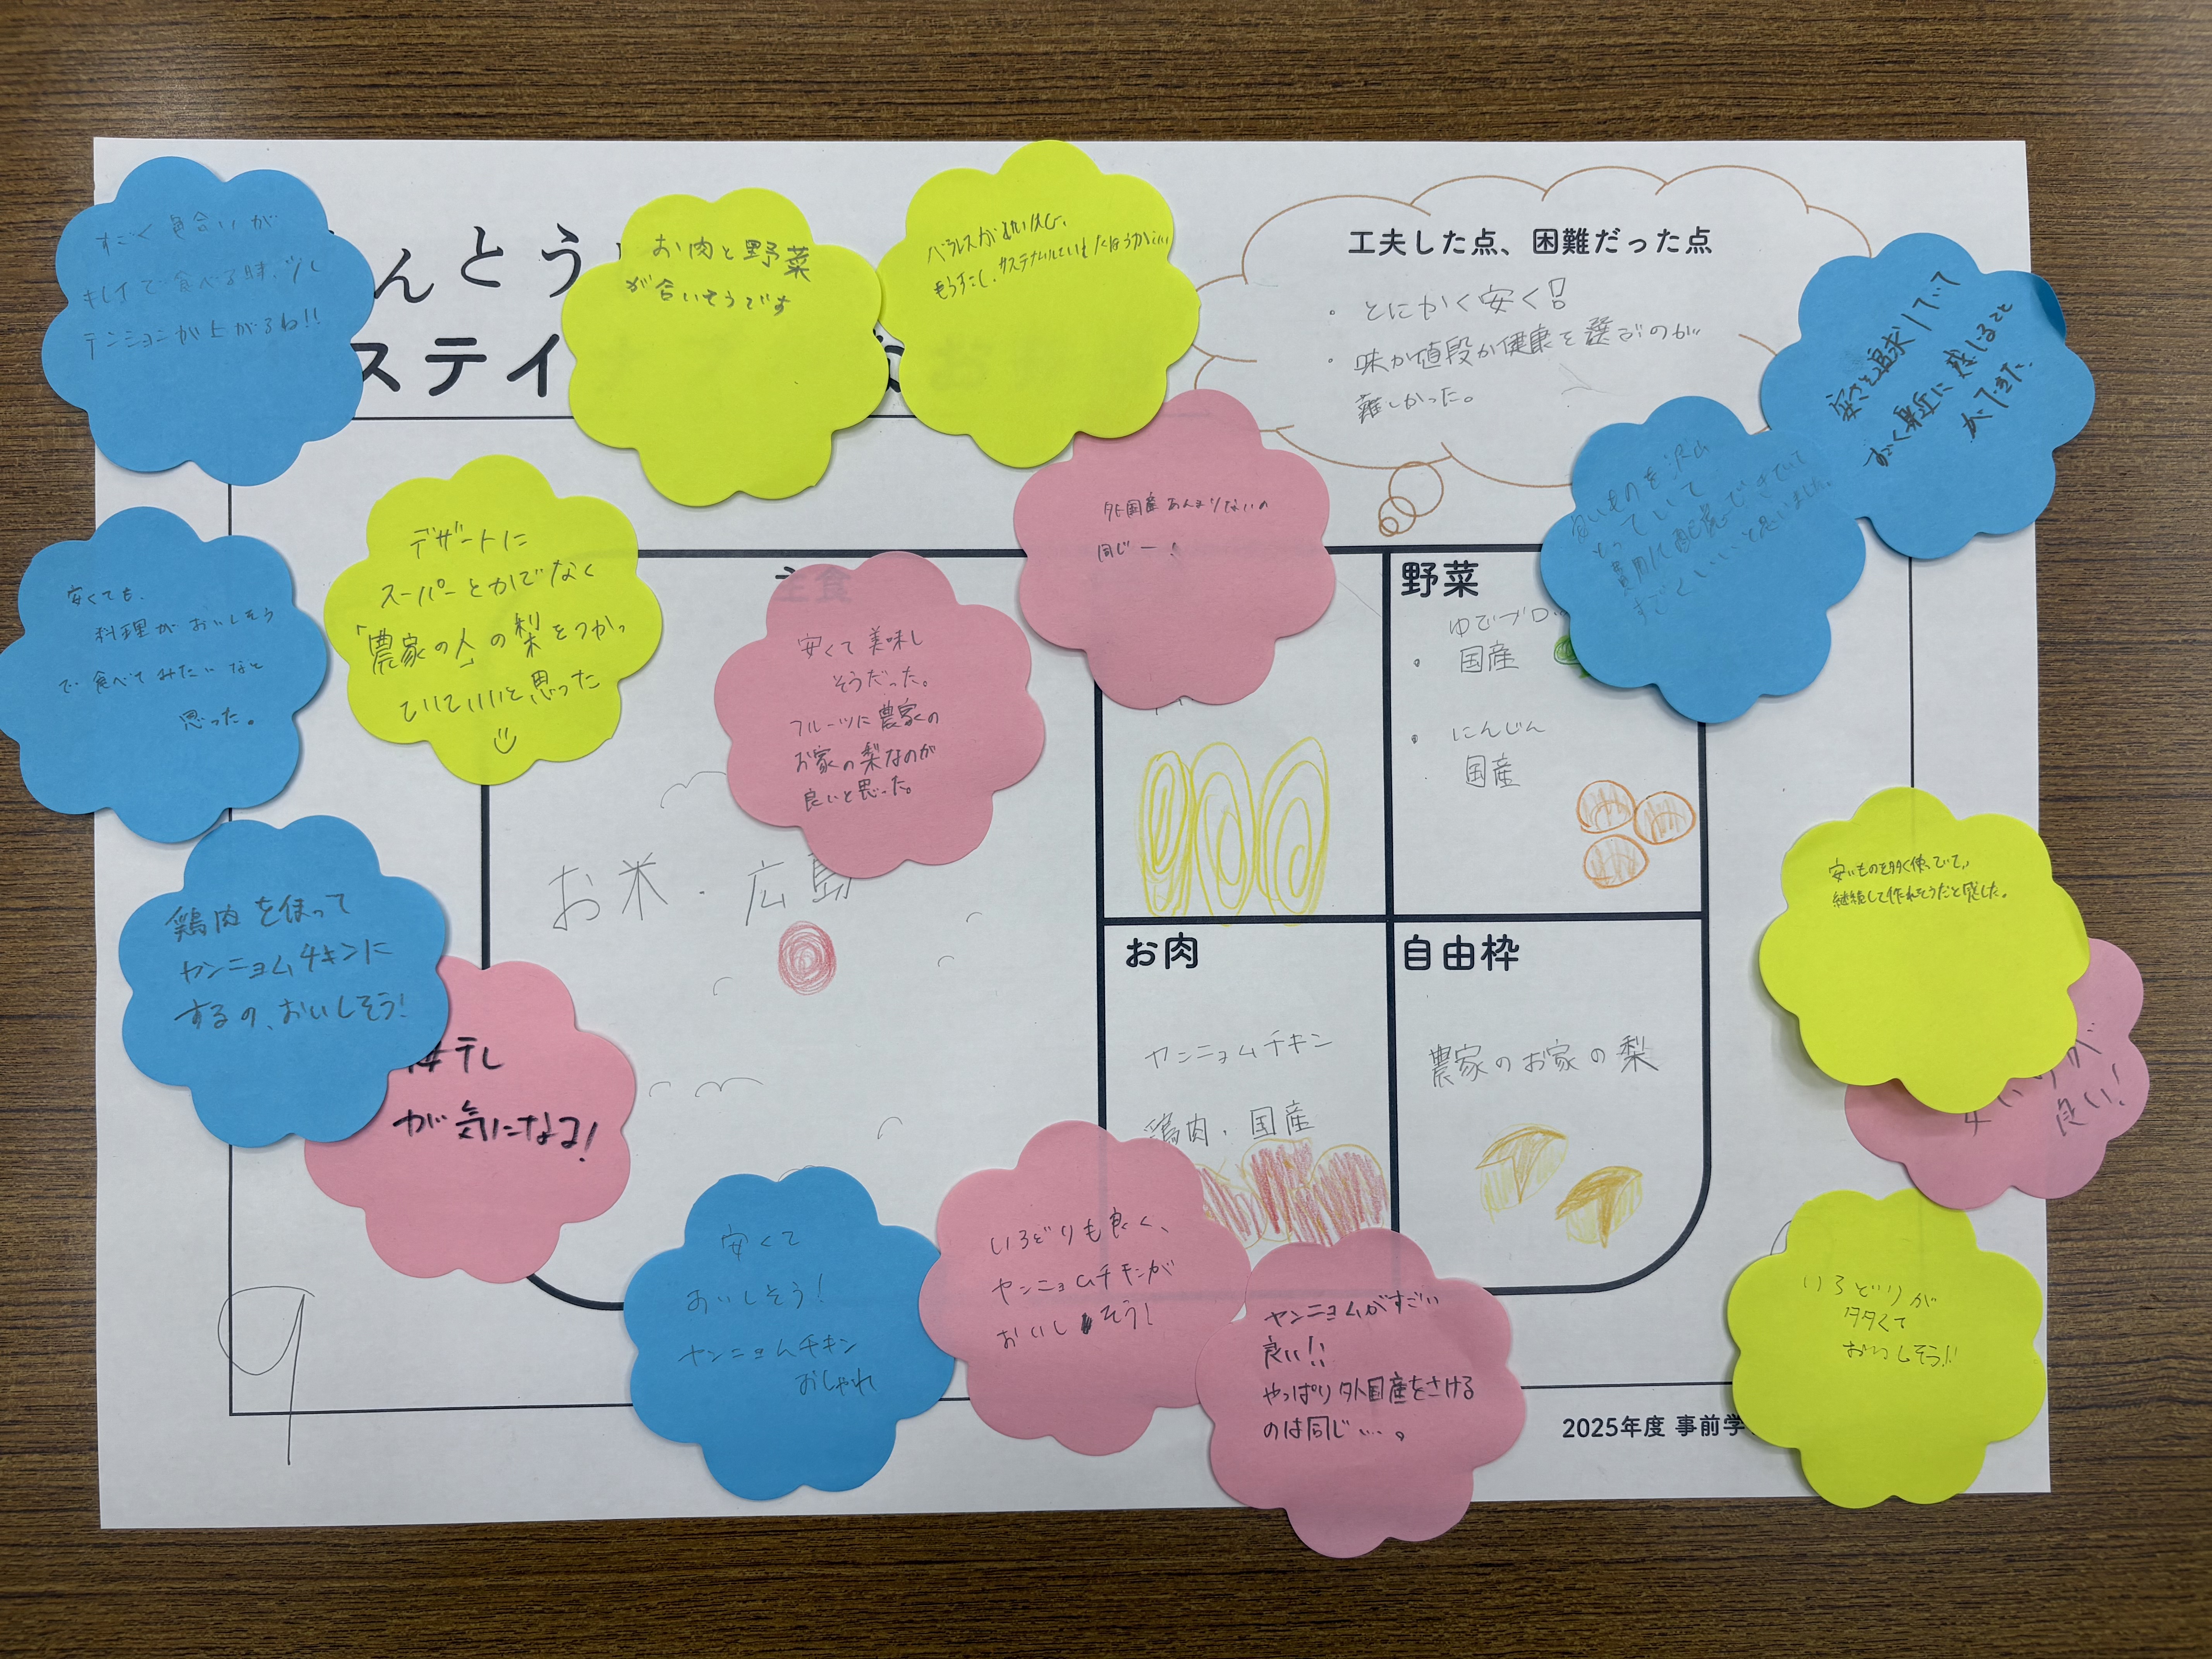 すごく色合いが
キレイで食べる時、少し
テンションが上がるね!!
んとう
ステイ
お肉と野菜
が合いそうです
バランスが良い
もう少し、サステナブルでいいと
工夫した点、困難だった点
・とにかく安く!!
・味か値段か健康を選ぶのが
難しかった。
安さを追求していて
すごく身近に感じること
ができた。
良いものを沢山
もっていて
費用に配慮できていて
すごくいいと思いました。
外国産あんまりないの
同じー!
安くても、
料理がおいしそう
で食べてみたいなと
思った。
デザートに
スーパーとかでなく
「農家の人」の梨をつかっ
ていていいと思った
主食
安くて美味し
そうだった。
フルーツに農家の
お家の梨なのが
良いと思った。
お米・広島
野菜
ゆでブロッ
・国産
・にんじん
国産
安いものを多く使っていて、
継続して作れそうだと感じた。
鶏肉を使って
ヤンニョムチキンに
するの、おいしそう!
梅干し
が気になる!
お肉
ヤンニョムチキン
鶏肉・国産
自由枠
農家のお家の梨
が
良い!
安くて
おいしそう!
ヤンニョムチキン
おしゃれ
いろどりも良く、
ヤンニョムチキンが
おいしそう!
ヤンニョムがすごい
良い!!
やっぱり外国産をさける
のは同じ…。
いろどりが
多くて
おいしそう!!
9
2025年度 事前学